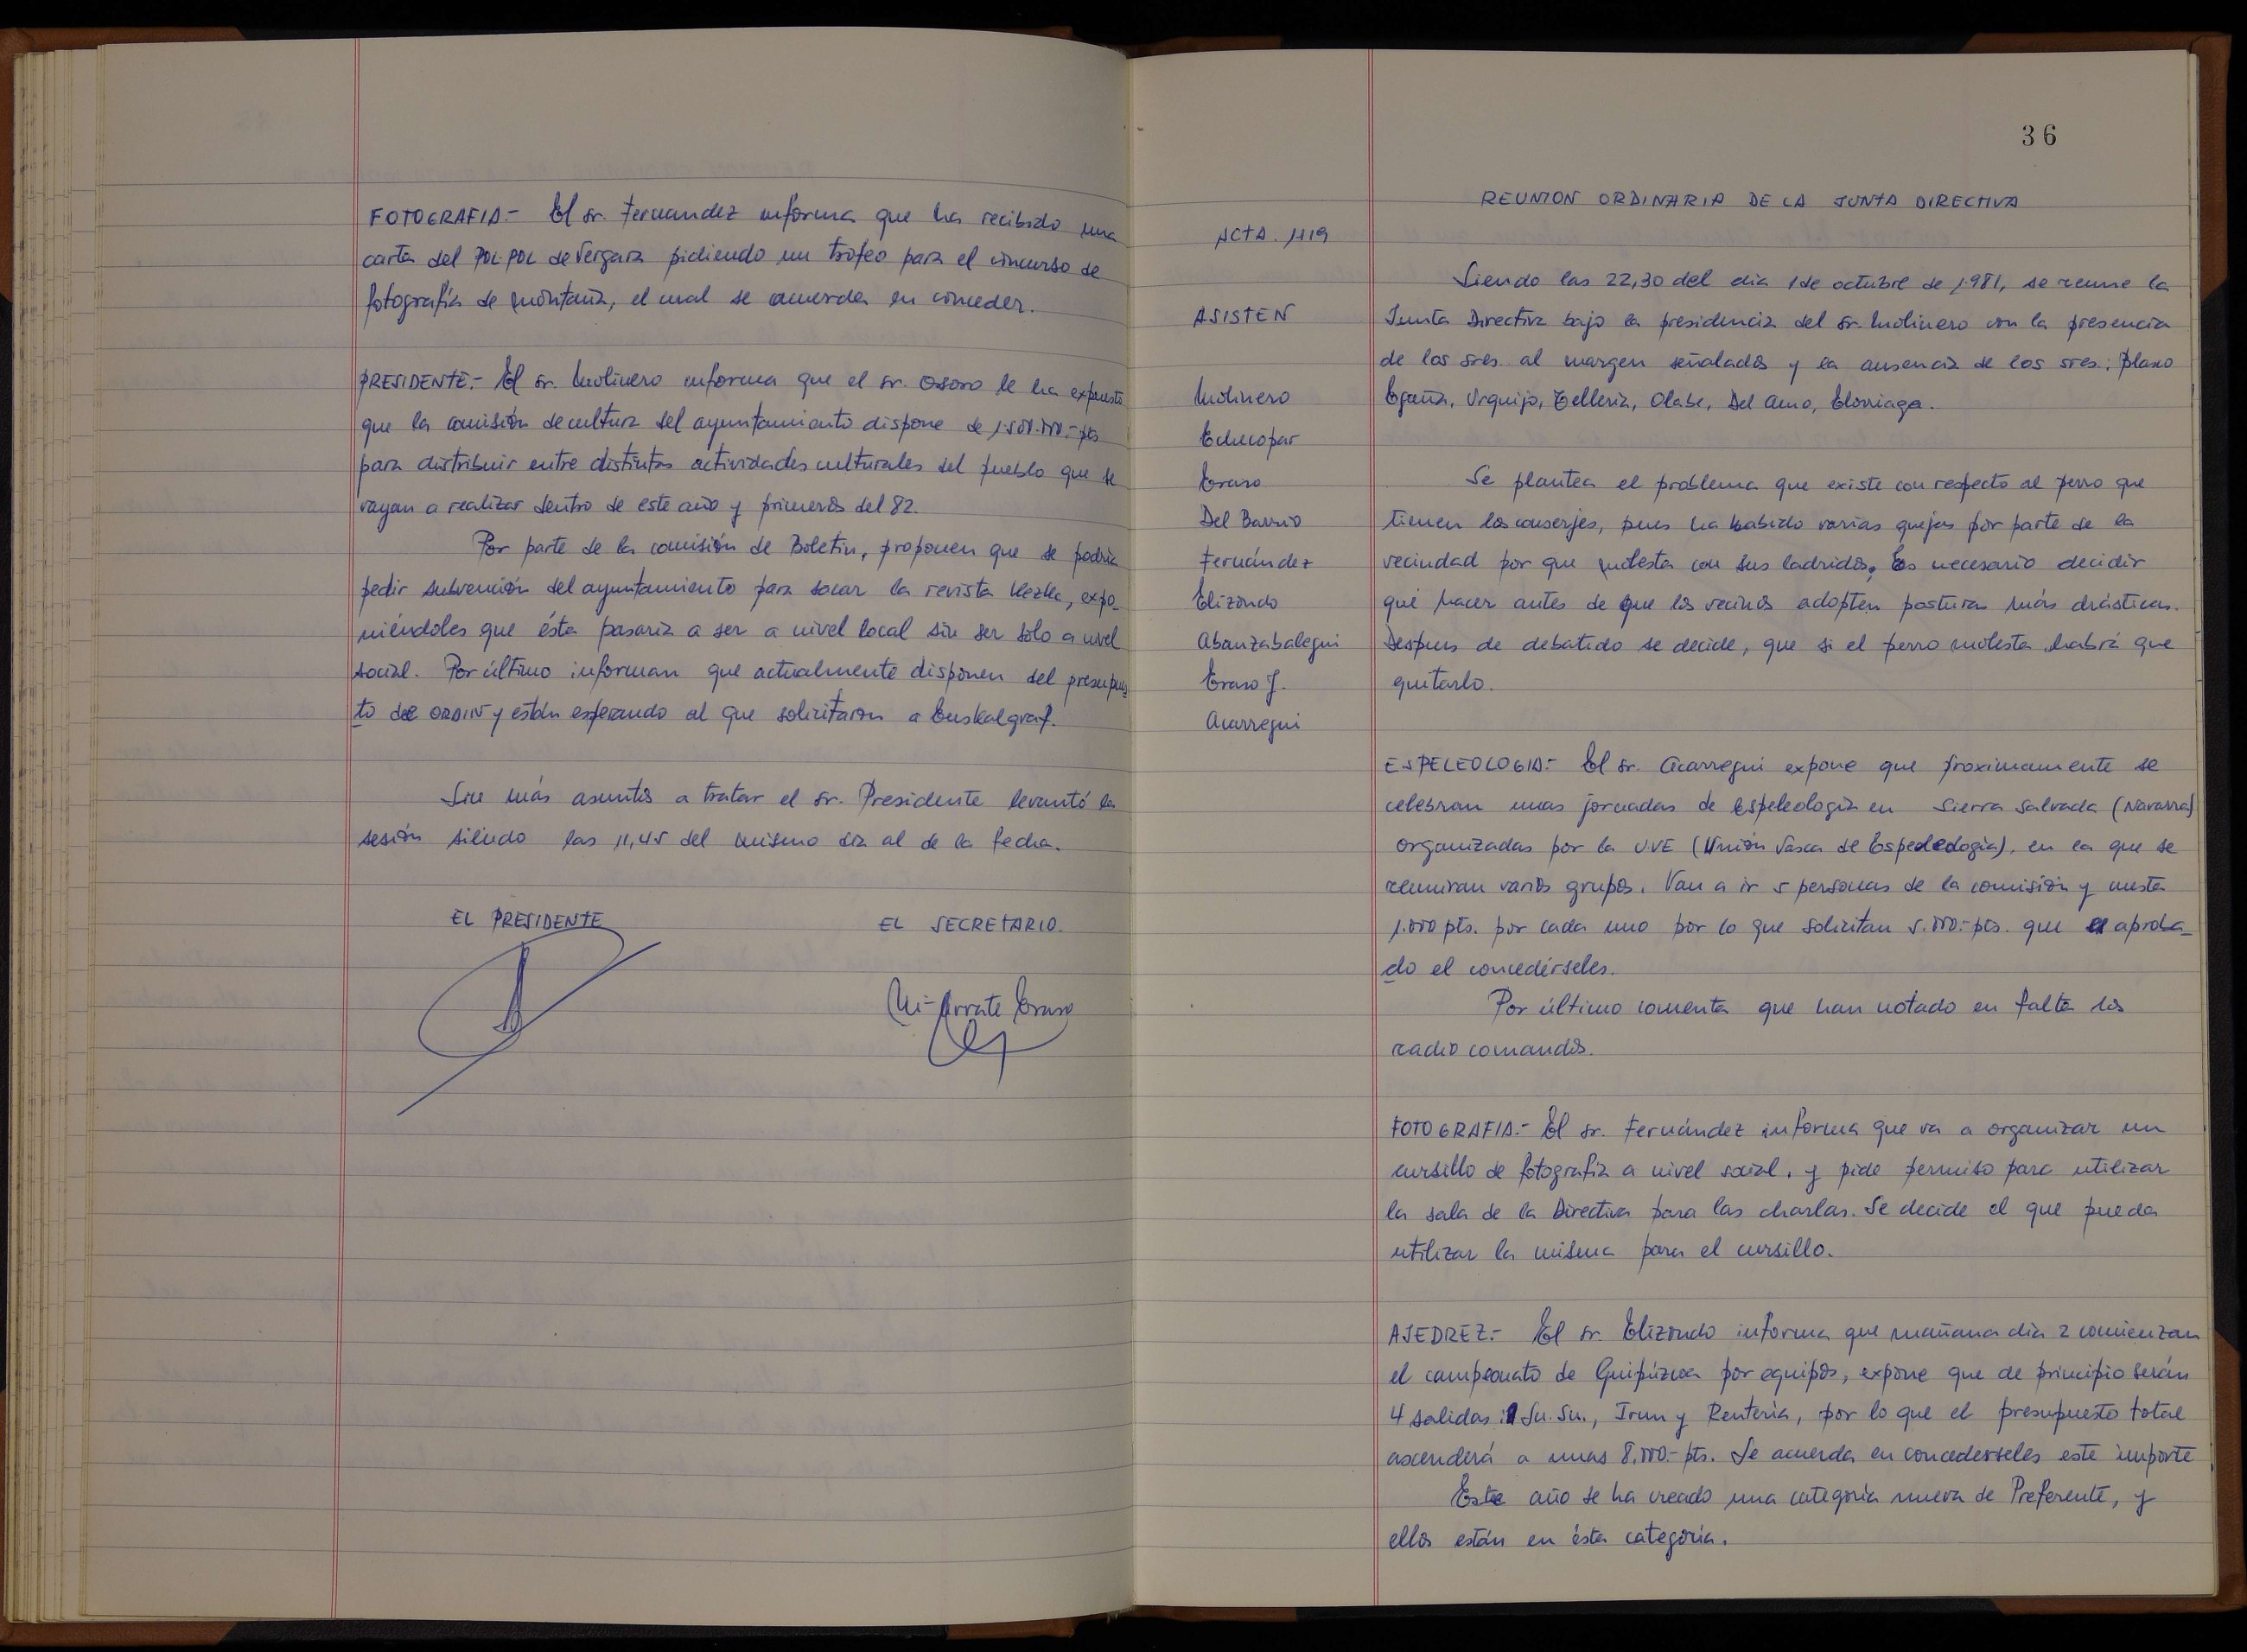 FOTOGRAFIA.- El sr. Fernandez informa que ha recibido una
carta del POL-POL de Vergara pidiendo un trofeo para el concurso de
fotografía de montaña, el cual se acuerda en conceder.
PRESIDENTE.- El sr. Molinero informa que el sr. Osoro le ha expuesto
que la comisión de cultura del ayuntamiento dispone de 1.500.000.- pts
para distribuir entre distintas actividades culturales del pueblo que se
vayan a realizar dentro de este año y primeros del 82.
Por parte de la comisión de Boletin, proponen que se podria
pedir subvención del ayuntamiento para sacar la revista Kezka, expo-
niéndoles que ésta pasaria a ser a nivel local sin ser sólo a nivel
social. Por último informan que actualmente disponen del presupues-
to de ORDIN y están esperando al que solicitaron a Euskalgraf.
Sin más asuntos a tratar el sr. Presidente levantó la
sesión siendo las 11,45 del mismo dia al de la fecha.
EL PRESIDENTE
EL SECRETARIO.
Mi-Arrate Eraso
36
REUNION ORDINARIA DE LA JUNTA DIRECTIVA
ACTA. 1119
ASISTEN
Molinero
Echecopar
Eraso
Del Barrio
Fernández
Elizondo
Abanzabalegui
Eraso J.
Acarregui
Siendo las 22,30 del día 1 de octubre de 1.981, se reune la
Junta Directiva bajo la presidencia del sr. Molinero con la presencia
de los sres. al margen señalados y la ausencia de los sres.: Plaxo
Egaña, Urquijo, Telleria, Olabe, Del Amo, Elorriaga.
Se plantea el problema que existe con respecto al perro que
tienen los conserjes, pues ha habido varias quejas por parte de la
vecindad por que molesta con sus ladridos, Es necesario decidir
qué hacer antes de que los vecinos adopten posturas más drásticas.
Despues de debatido se decide, que si el perro molesta habrá que
quitarlo.
ESPELEOLOGIA.- El sr. Acarregui expone que proximamente se
celebran unas jornadas de Espeleologia en Sierra Salvada (Navarra)
organizadas por la UVE (Unión Vasca de Espeleología), en la que se
reuniran varios grupos. Van a ir 5 personas de la comisión y cuesta
1.000 pts. por cada uno por lo que solicitan 5.000.- pts. que es aproba-
do el concedérseles.
Por último comenta que han notado en falta los
radio comandos.
FOTOGRAFIA.- El sr. Fernández informa que va a organizar un
cursillo de fotografia a nivel social, y pide permiso para utilizar
la sala de la Directiva para las charlas. Se decide el que pueda
utilizar la misma para el cursillo.
AJEDREZ.- El sr. Elizondo informa que mañana día 2 comienzan
el campeonato de Guipúzcoa por equipos, expone que de principio serán
4 salidas: Sn. Sn., Irun y Renteria, por lo que el presupuesto total
ascenderá a unas 8.000.- pts. Se acuerda en concederseles este importe
Este año se ha creado una categoria nueva de Preferente, y
ellos están en ésta categoria.